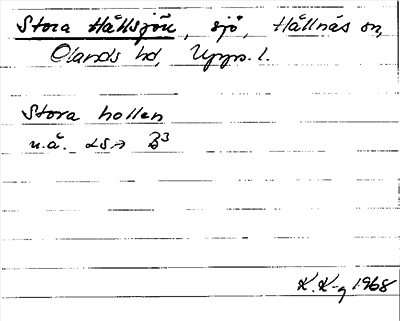 Stora Hållsjön, sjö, Hållnäs sn,
Olands hd, Upps. l.
Stora hollen
u.å. LSA B3
K. K-g 1968